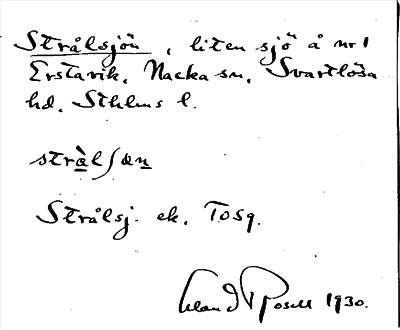 Strålsjön, liten sjö å nr 1
Erstavik. Nacka sn. Svartlösa
hd. Sthlms l.
stràlʃɷn
Strålsj. ek. TOSq.
Rosell 1930.